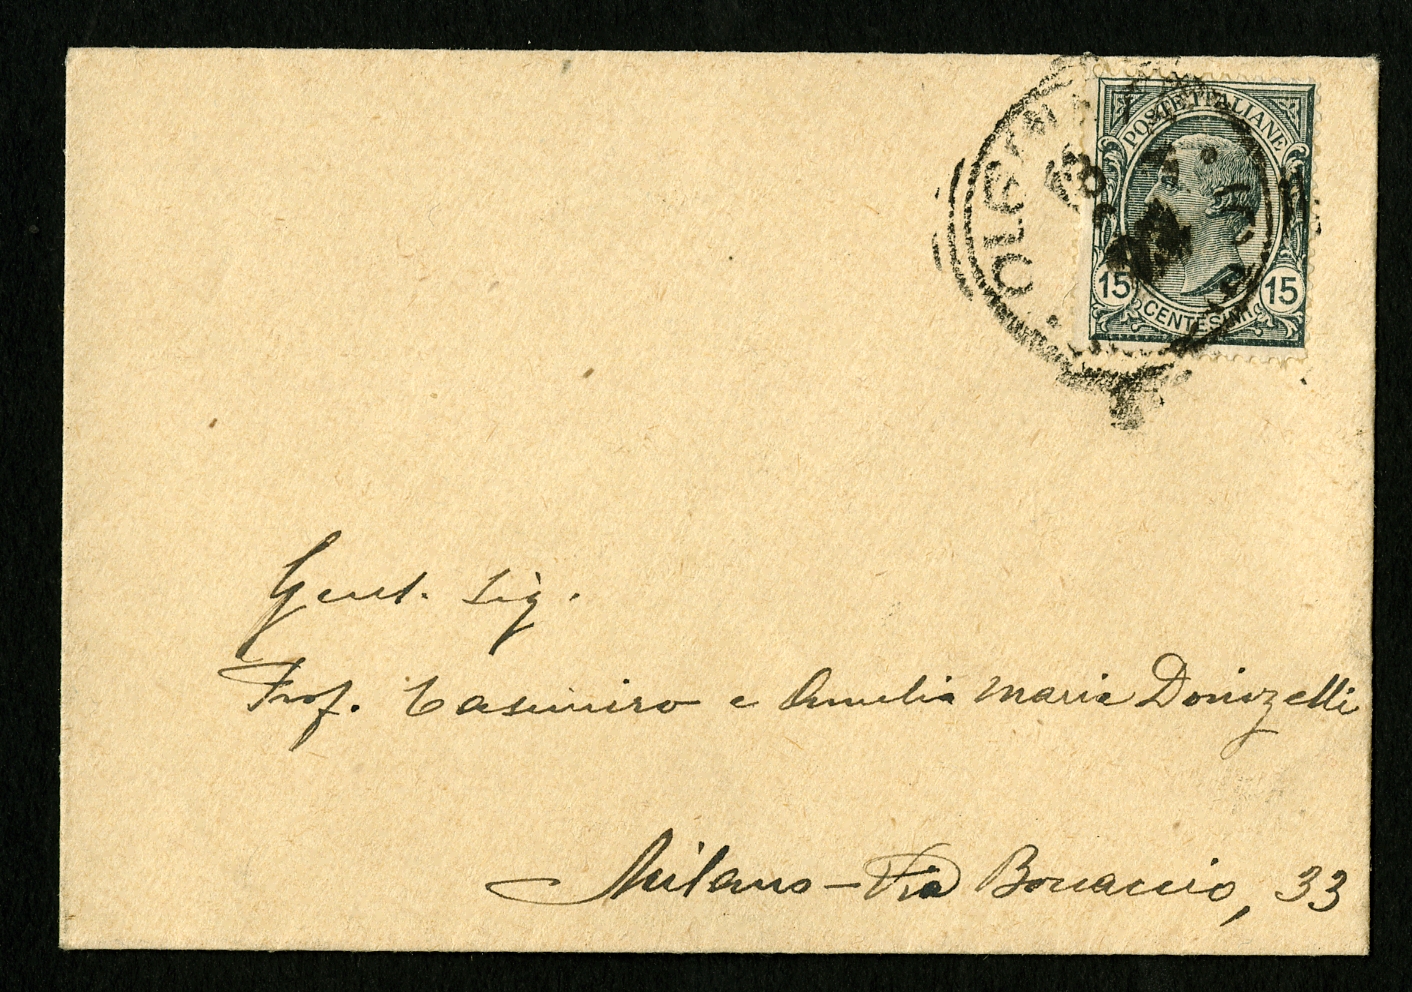 POSTE ITALIANE
15 CENTESIMI 15
Gent. Sig.
Prof. Casimiro e Amelia Maria Donizelli
Milano - Via Boccaccio, 33